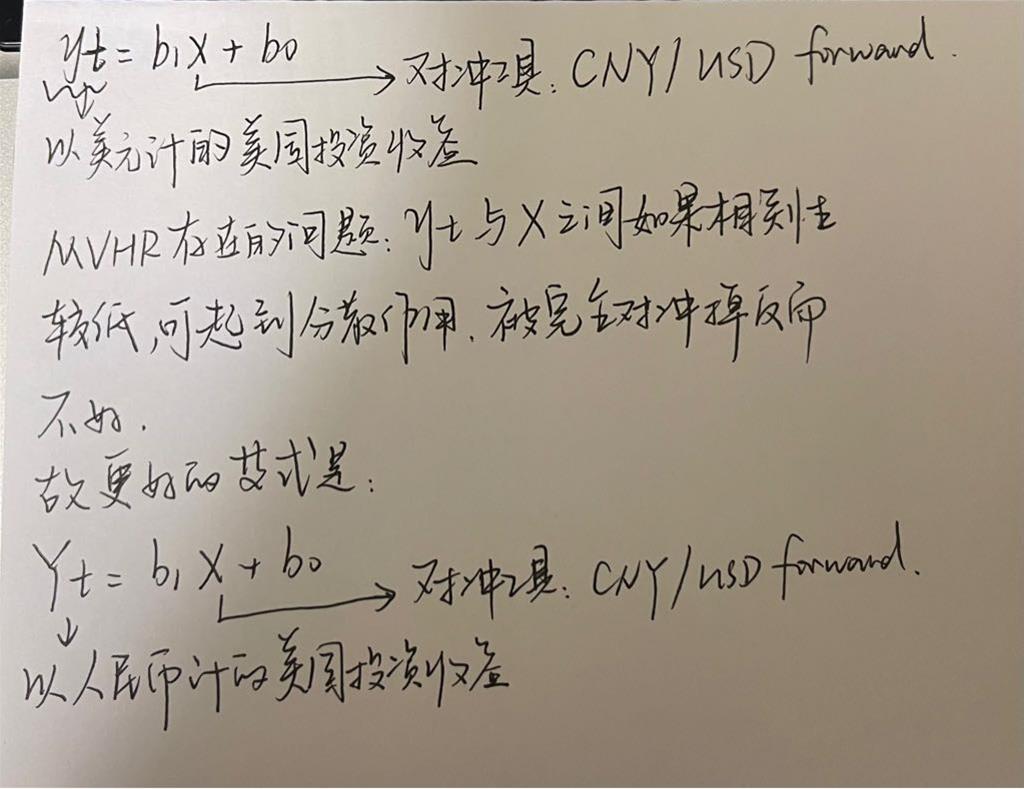 yt = b1X + b0 → 对冲工具: CNY/USD forward.
以美元计的美国投资收益
MVHR存在的问题: yt与X之间如果相关性
较低,可起到分散作用.被完全对冲掉反而
不好.
故更好的艾式是:
Yt = b1X + b0 → 对冲工具: CNY/USD forward.
以人民币计的美国投资收益